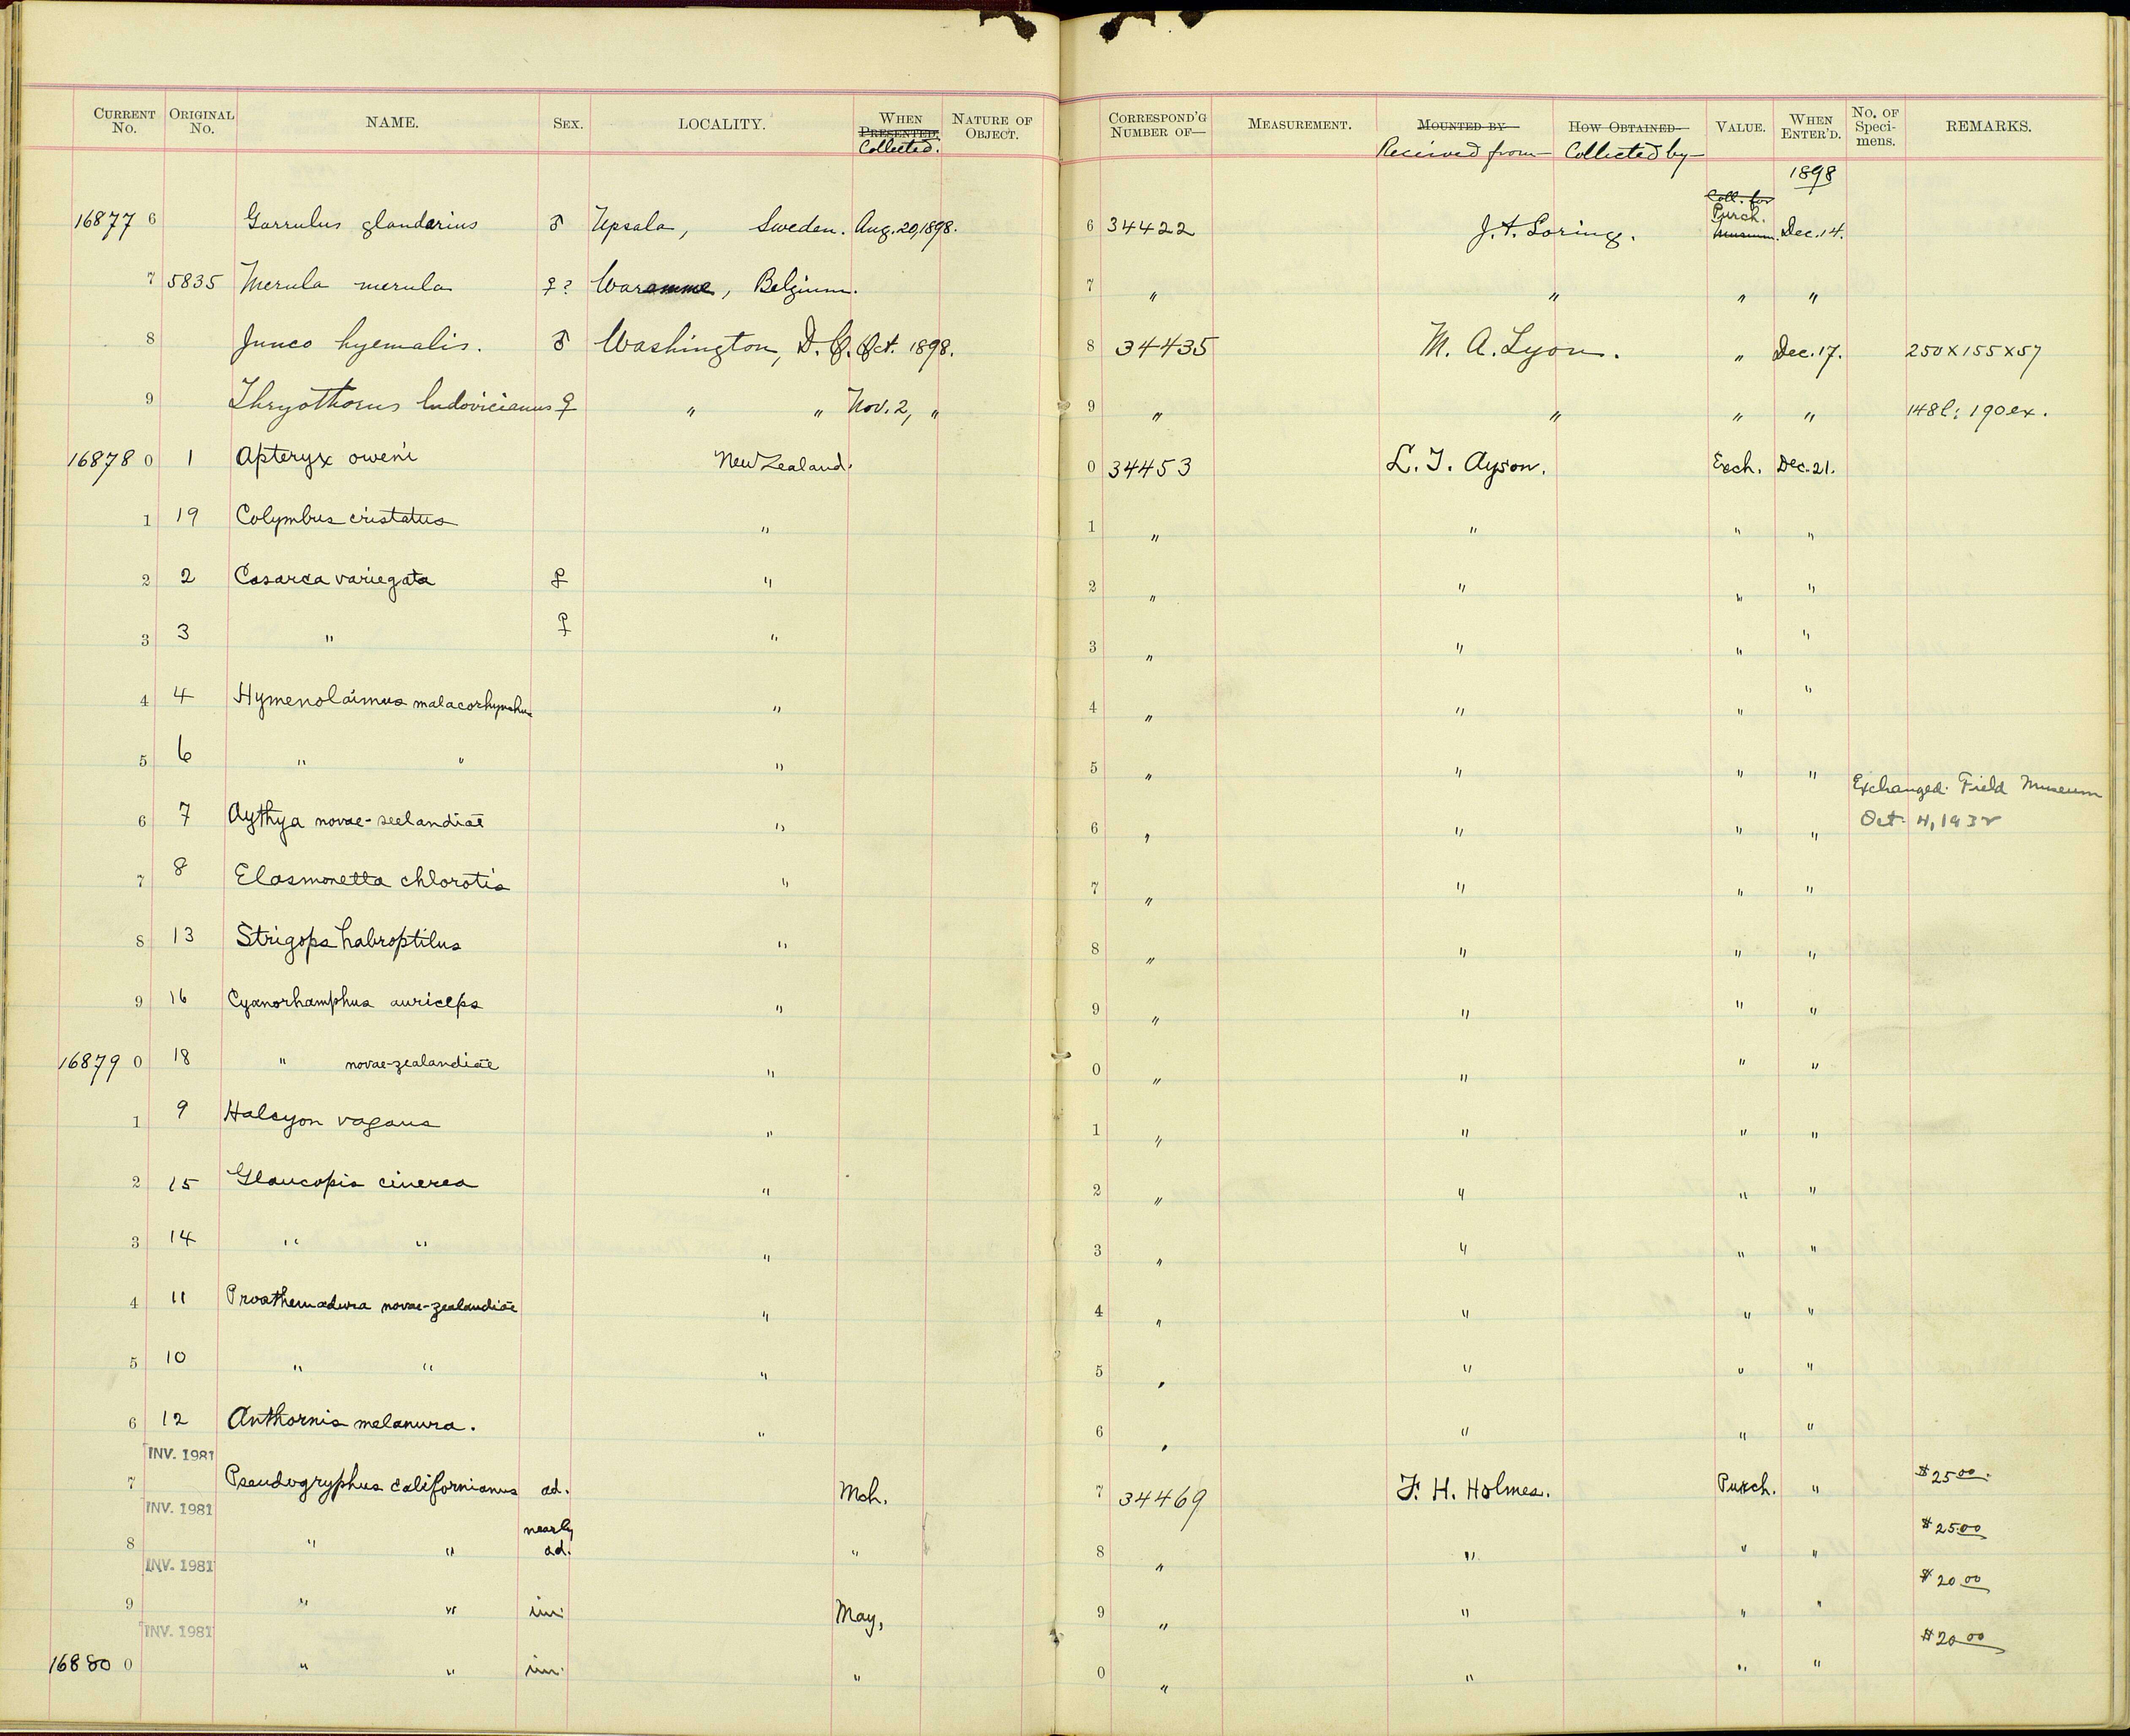 CURRENT No. ORIGINAL No. NAME. SEX. LOCALITY. WHEN PRESENTED. Collected. NATURE OF OBJECT. CORRESPOND'G NUMBER OF— MEASUREMENT. MOUNTED BY Received from HOW OBTAINED Collected by VALUE. WHEN ENTER'D. No. OF Speci-mens. REMARKS.
1898
16877 6 Garrulus glandarius ♂ Upsala, Sweden. Aug. 20, 1898. 6 34422 J. A. Loring. Coll. for Purch. Museum. Dec. 14.
7 5835 Merula merula ♀? Waramme, Belgium. 7 " " " "
8 Junco hyemalis. ♂ Washington, D. C. Oct. 1898. 8 34435 M. A. Lyon. " Dec. 17. 250 x 155 x 57
9 Thryothorus ludovicianus ♀ " " Nov. 2, " 9 " " " " 148 l; 190 ex.
16878 0 1 Apteryx oweni New Zealand. 0 34453 L. T. Ayson. Exch. Dec. 21.
1 19 Colymbus cristatus " 1 " " " "
2 2 Casarca variegata ♀ " 2 " " " "
3 3 " ♀ " 3 " " " "
4 4 Hymenolaimus malacorhynchus " 4 " " " "
5 6 " " " 5 " " " "
Exchanged Field Museum
6 7 Aythya novae-seelandiae " 6 " " " " Oct. 4, 1932
7 8 Elasmonetta chlorotis " 7 " " " "
8 13 Strigops habroptilus " 8 " " " "
9 16 Cyanorhamphus auriceps " 9 " " " "
16879 0 18 " novae-zealandiae " 0 " " " "
1 9 Halcyon vagans " 1 " " " "
2 15 Glaucopis cinerea " 2 " " " "
3 14 " " " 3 " " " "
4 11 Prosthemadura novae-zealandiae " 4 " " " "
5 10 " " " 5 " " " "
6 12 Anthornis melanura. " 6 " " " "
INV. 1981
7 Pseudogryphus californianus ad. Mch. 7 34469 F. H. Holmes. Purch. " $25.00
INV. 1981
8 " " nearly ad. " 8 " " " " $25.00
INV. 1981
9 " " im. May, 9 " " " " $20.00
INV. 1981
16880 0 " " im. " 0 " " " " $20.00